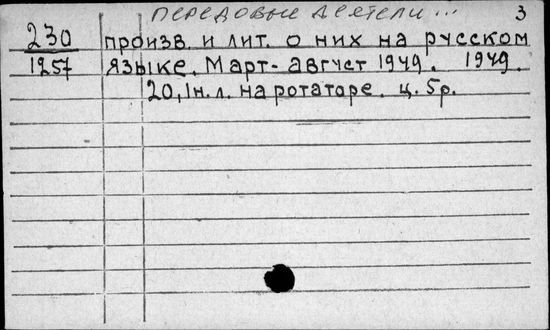 передовые деятели... 3
230 произв. и лит. о них на русском
1257 языке. Март-август 1949. 1949.
20,1н.л. на ротаторе. ц. 5р.